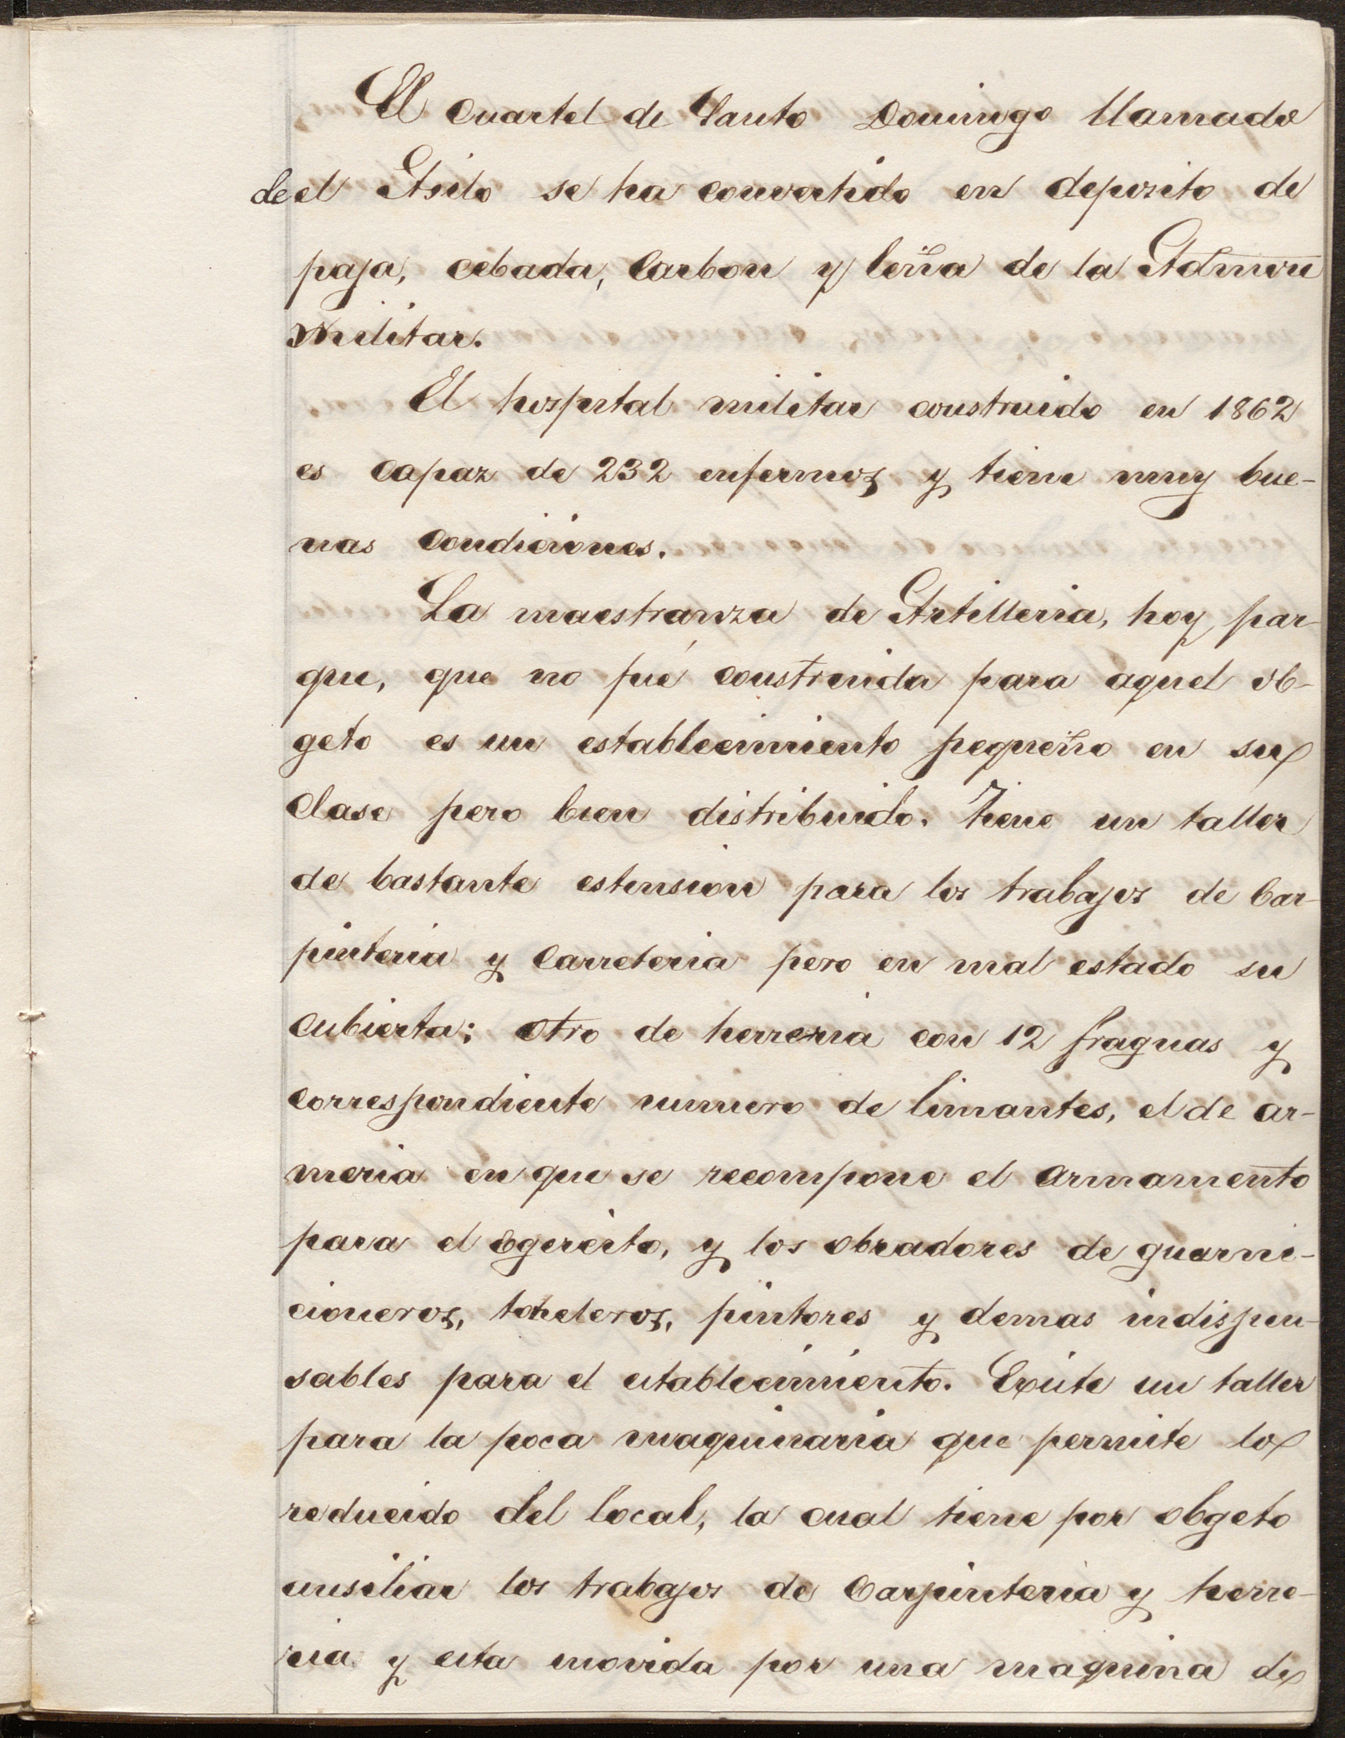 El Cuartel de Santo Domingo llamado
de el Asilo se ha convertido en deposito de
paja, cebada, Carbon y leña de la Admon
Militar.
El hospital militar construido en 1862
es capaz de 232 enfermos y tiene muy bue-
nas Condiciones.
La maestranza de Artilleria, hoy par-
que, que no fué construida para aquel ob-
geto es un establecimiento pequeño en su
clase pero bien distribuido. Tiene un taller
de bastante estension para los trabajos de Car-
pinteria y Carreteria pero en mal estado su
cubierta; otro de herreria con 12 fraguas y
correspondiente numero de limantes, el de ar-
meria en que se recompone el armamento
para el Egercito, y los obradores de guarni-
cioneros, toneleros, pintores y demas indispen-
sables para el establecimiento. Existe un taller
para la poca maquinaria que permite lo
reducido del local, la cual tiene por obgeto
ausiliar los trabajos de Carpinteria y herre-
ria y esta movida por una maquina de